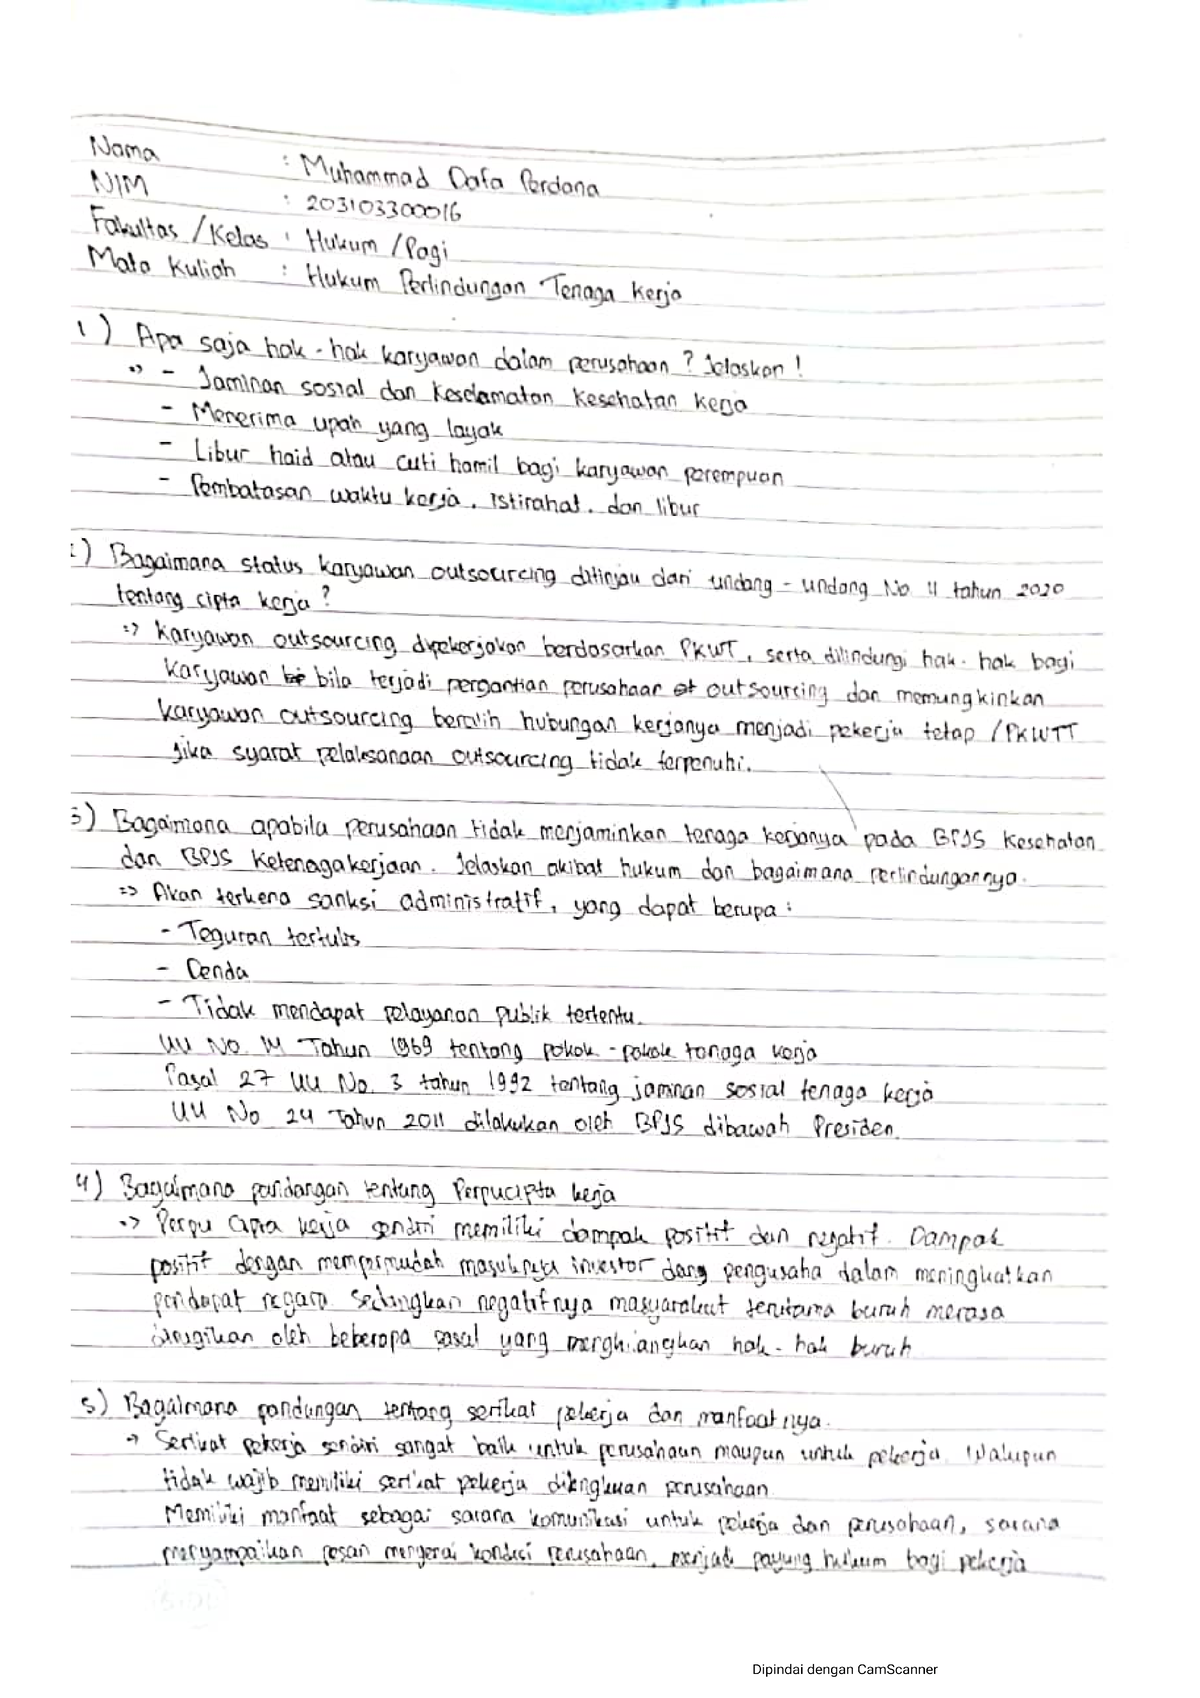 Nama : Muhammad Dafa Perdana
NIM : 203103300016
Fakultas / Kelas : Hukum / Pagi
Mata Kuliah : Hukum Perlindungan Tenaga Kerja
1) Apa saja hak - hak karyawan dalam perusahaan ? Jelaskan !
=> - Jaminan sosial dan keselamatan kesehatan kerja
- Menerima upah yang layak
- Libur haid atau cuti hamil bagi karyawan perempuan
- Pembatasan waktu kerja, istirahat, dan libur
2) Bagaimana status karyawan outsourcing ditinjau dari undang - undang No 11 tahun 2020
tentang cipta kerja ?
=> Karyawan outsourcing dipekerjakan berdasarkan PKWT, serta dilindungi hak - hak bagi
karyawan bila terjadi pergantian perusahaan outsourcing dan memungkinkan
karyawan outsourcing beralih hubungan kerjanya menjadi pekerja tetap / PKWTT
jika syarat pelaksanaan outsourcing tidak terpenuhi.
3) Bagaimana apabila perusahaan tidak menjaminkan tenaga kerjanya pada BPJS Kesehatan
dan BPJS Ketenagakerjaan. Jelaskan akibat hukum dan bagaimana perlindungannya.
=> Akan terkena sanksi administratif, yang dapat berupa :
- Teguran tertulis
- Denda
- Tidak mendapat pelayanan publik tertentu.
UU No. 14 Tahun 1969 tentang pokok - pokok tenaga kerja
Pasal 27 UU No. 3 tahun 1992 tentang jaminan sosial tenaga kerja
UU No 24 Tahun 2011 dilakukan oleh BPJS dibawah Presiden.
4) Bagaimana pandangan tentang Perpu cipta kerja
=> Perpu Cipta kerja sendiri memiliki dampak positif dan negatif. Dampak
positif dengan mempermudah masuknya investor dang pengusaha dalam meningkatkan
pendapat negara. Sedangkan negatifnya masyarakat terutama buruh merasa
dirugikan oleh beberapa pasal yang menghilangkan hak - hak buruh
5) Bagaimana pandangan tentang serikat pekerja dan manfaatnya.
=> Serikat pekerja sendiri sangat baik untuk perusahaan maupun untuk pekerja. Walaupun
tidak wajib memiliki serikat pekerja dilingkuan perusahaan
Memiliki manfaat sebagai sarana komunikasi untuk pekerja dan perusahaan, sarana
menyampaikan pesan mengenai kondisi perusahaan, menjadi payung hukum bagi pekerja
Dipindai dengan CamScanner